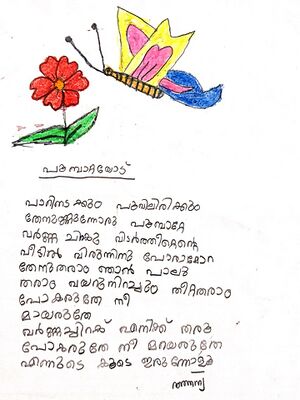 പൂമ്പാറ്റയോട്
പാറിനടക്കും പൂവിലിരിക്കും
തേനുണ്ണുന്നോരു പൂമ്പാറ്റേ
വർണ്ണ ചിറകു വിടർത്തിയെന്റെ
വീട്ടിൽ വിരുന്നിനു പോരാമോ
തേനുതരാം ഞാൻ പാലു
തരാം വയറുനിറച്ചും തീറ്റതരാം
പോകരുതേ നീ
മായരുതേ
വർണ്ണപ്പിറക് എനിക്ക് തരൂ
പോകരുതേ നീ മറയരുതേ
എന്നുടെ കൂടെ ഇരുന്നോളൂ